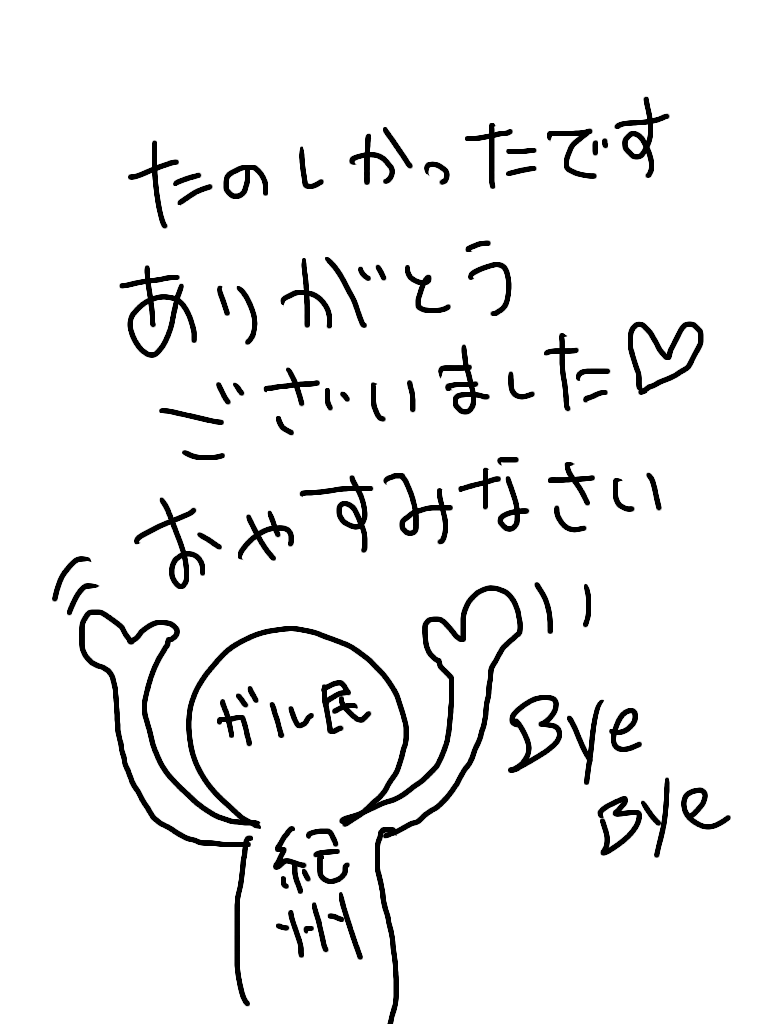 たのしかったです
ありがとう
ございました♡
おやすみなさい
ガル民
Bye
Bye
紀
州